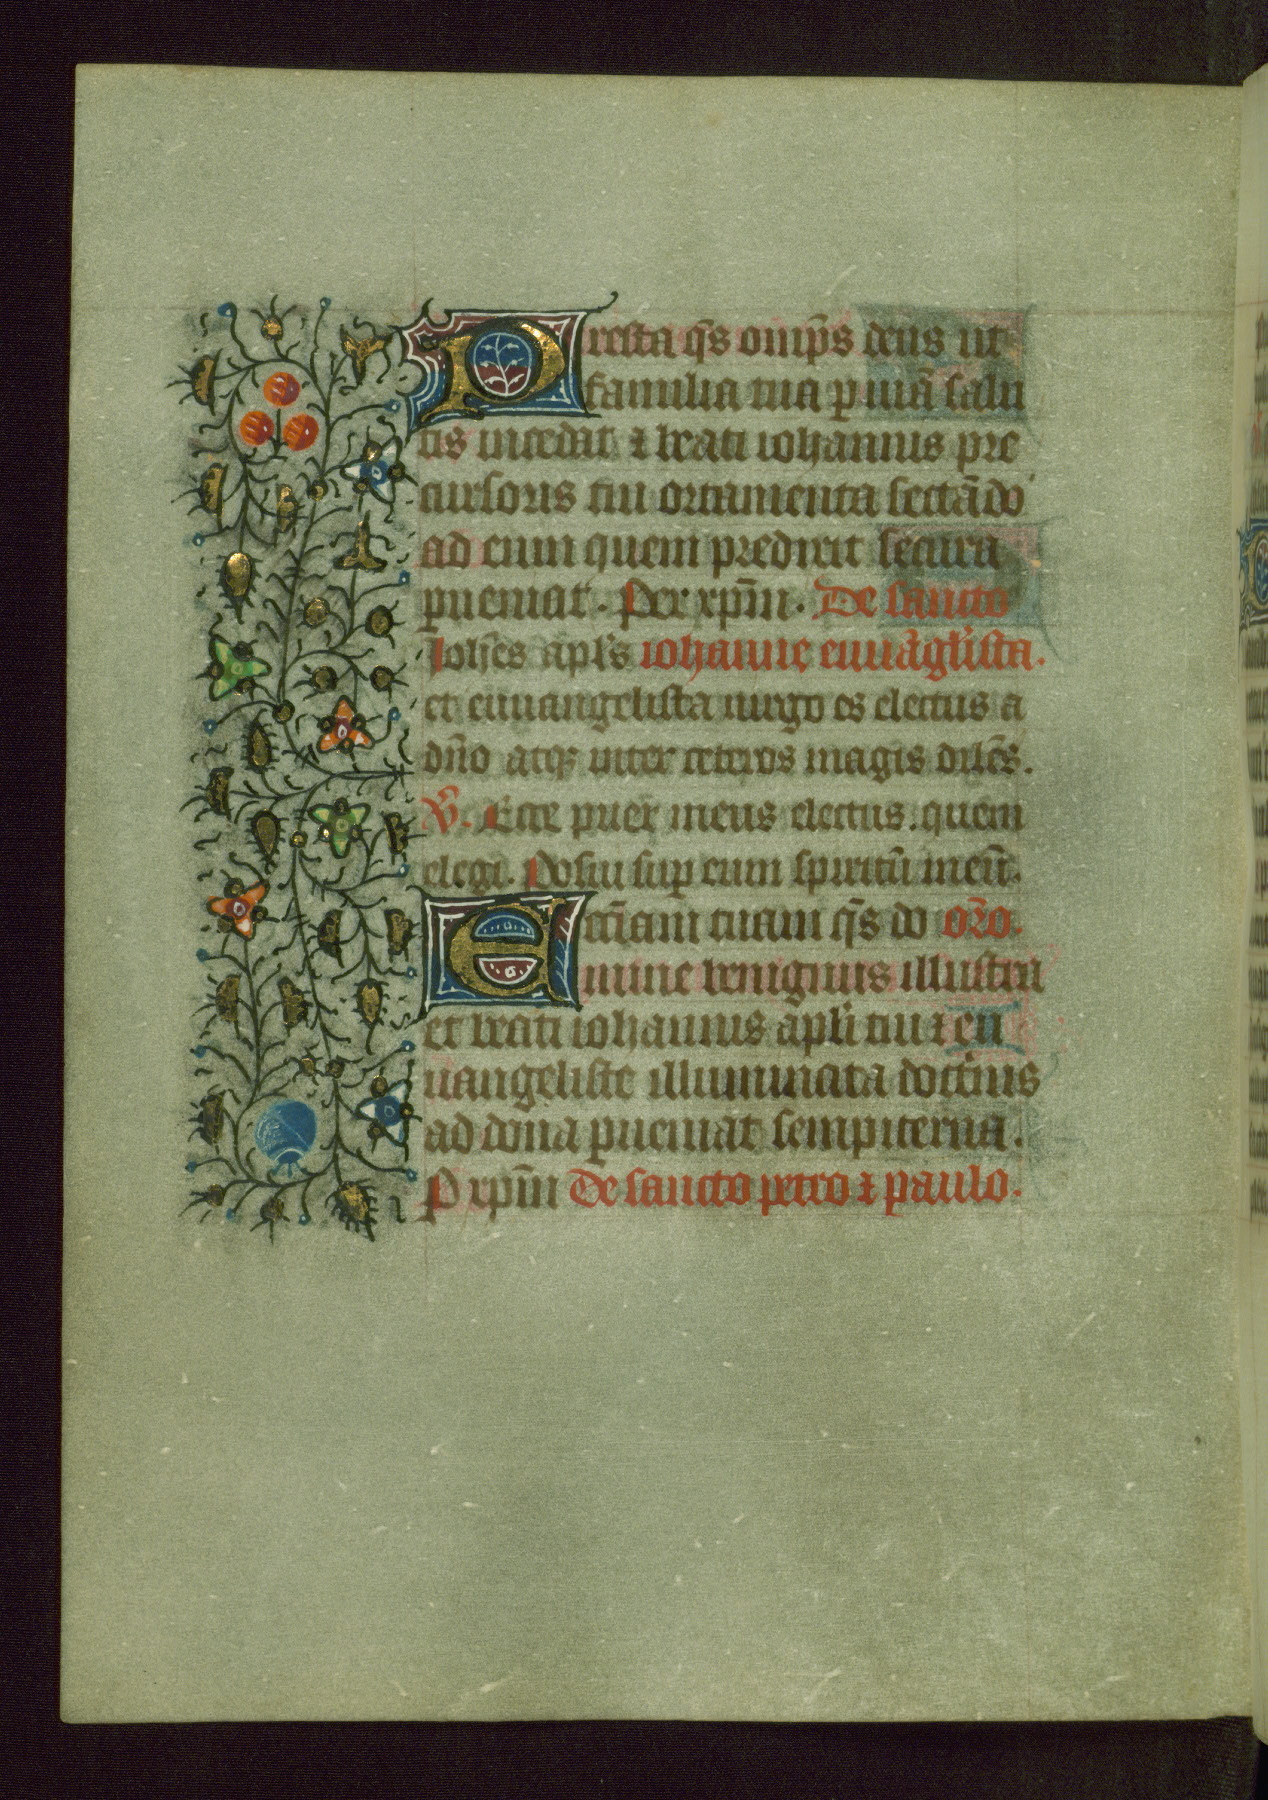 Presta q̄s om̄ips deus ut
familia tua p uiā salu
tis incedat ⁊ beati iohannis pre
cursoris tui ortamenta sectādo
ad eum quem predixit secura
pueniat. Per xp̄m. De sancto
Joh̄es apl̄s iohanne euuāgl̄ista.
et euuangelista uirgo es electus a
dn̄o atq; inter ceteros magis dilc̄s.
V̄. Ecce puer meus electus. quem
elegi. Posui sup eum spiritū meū.
Ecc̄iam tuam q̄s do or̄o.
mine benignus illustra
et beati iohannis apl̄i tui ⁊ eu
uangeliste illuminata doctinis
ad dona pueniat sempiterna.
P xp̄m De sancto petro ⁊ paulo.